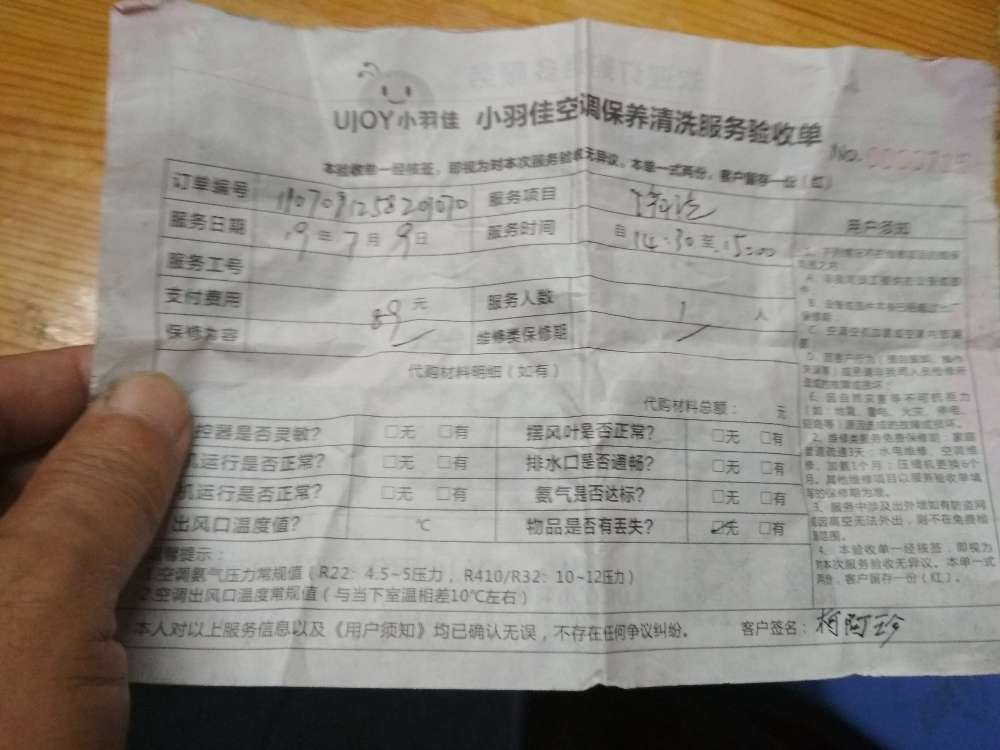 UJOY小羽佳 小羽佳空调保养清洗服务验收单
No.
本验收单一经核签，即视为对本次服务验收无异议。本单一式两份，客户留存一份（红）
订单编号 服务项目
服务日期 19年7月9日 服务时间 自14:30至15:00
服务工号
支付费用 89元 服务人数 1人
保修内容 维修类保修期
代购材料明细（如有）
代购材料总额： 元
控器是否灵敏？ □无 □有 摆风叶是否正常？ □无 □有
机运行是否正常？ □无 □有 排水口是否通畅？ □无 □有
机运行是否正常？ □无 □有 氨气是否达标？ □无 □有
出风口温度值？ ℃ 物品是否有丢失？ ☑无 □有
提示：
空调氨气压力常规值（R22：4.5~5压力，R410/R32：10~12压力）
2.空调出风口温度常规值（与当下室温相差10℃左右）
本人对以上服务信息以及《用户须知》均已确认无误，不存在任何争议纠纷。 客户签名：柯阿珍
用户须知
保修期；
C、空调空机加氨或空调内管漏
造成的故障或损坏；
E、因自然灾害等不可抗力
（如：地震、雷电、火灾、停电、
等）原因造成的故障或损坏。
2、维修类服务免费保修期：家庭
管道疏通3天；水电维修、空调维
修、加氨1个月；压缩机更换6个
月。其他维修项目以服务验收单填
写的保修期为准。
3、服务中涉及出外增如有防盗网
或因高空无法外出，则不在免费维
范围。
4、本验收单一经核签，即视为
对本次服务验收无异议。本单一式
两份，客户留存一份（红）。